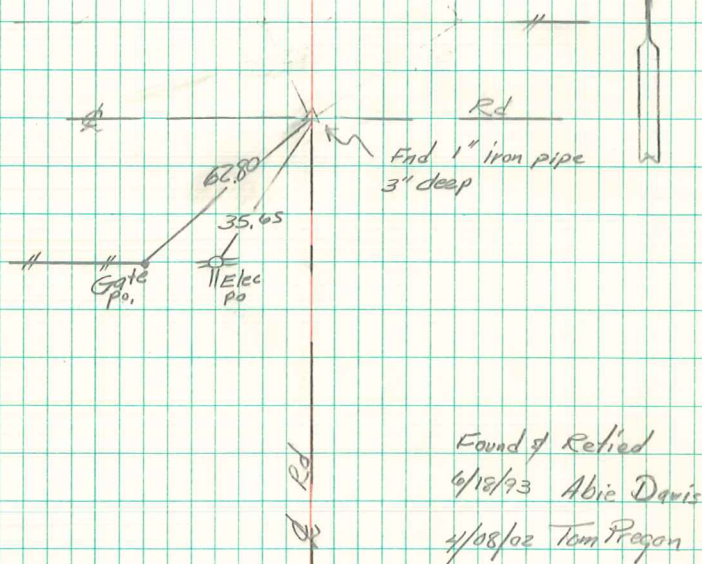 ℄ Rd
Fnd 1" iron pipe
3" deep
62.80
35.65
Gate
po.
Elec
po
℄ Rd
Found & Retied
6/18/93 Abie Davis
4/08/02 Tom Pregon